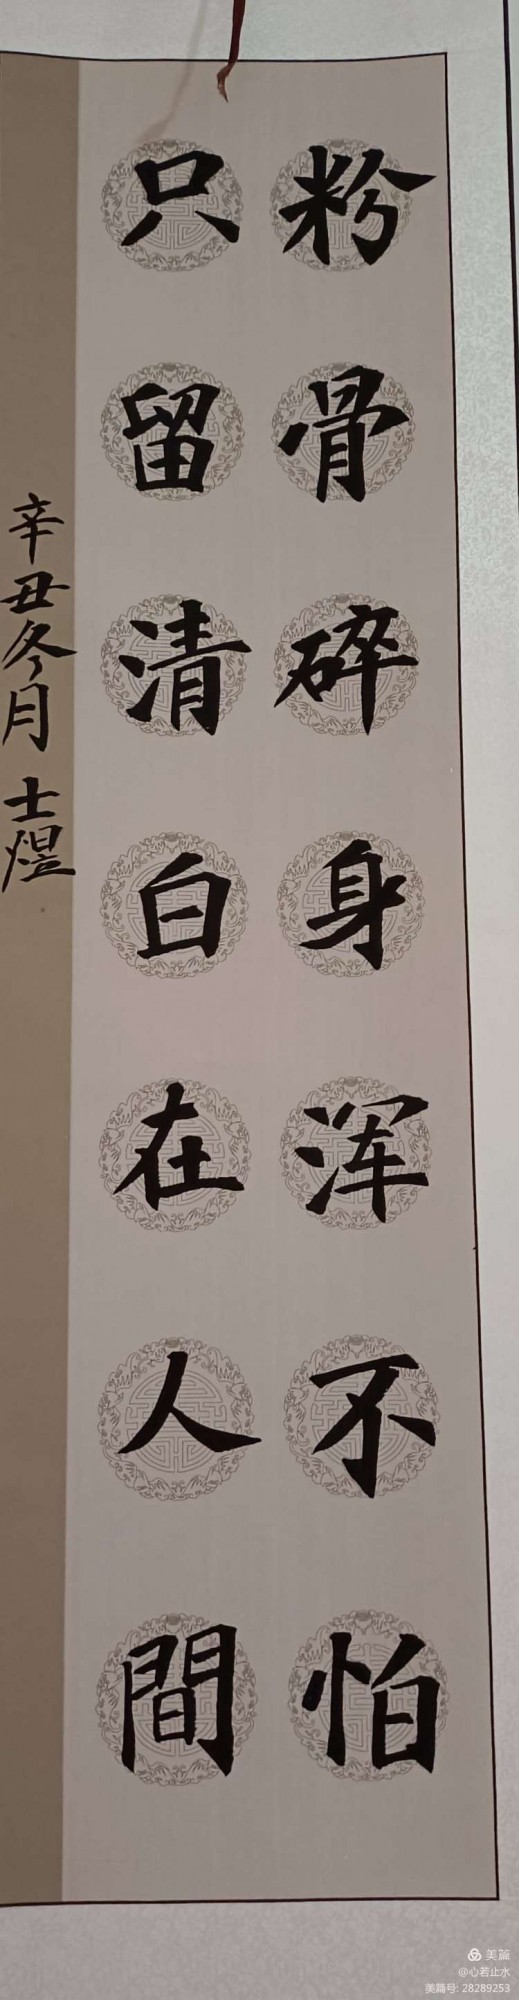 粉骨碎身浑不怕
只留清白在人間
辛丑冬月 士煜
美篇
@心若止水
美篇号: 28289253